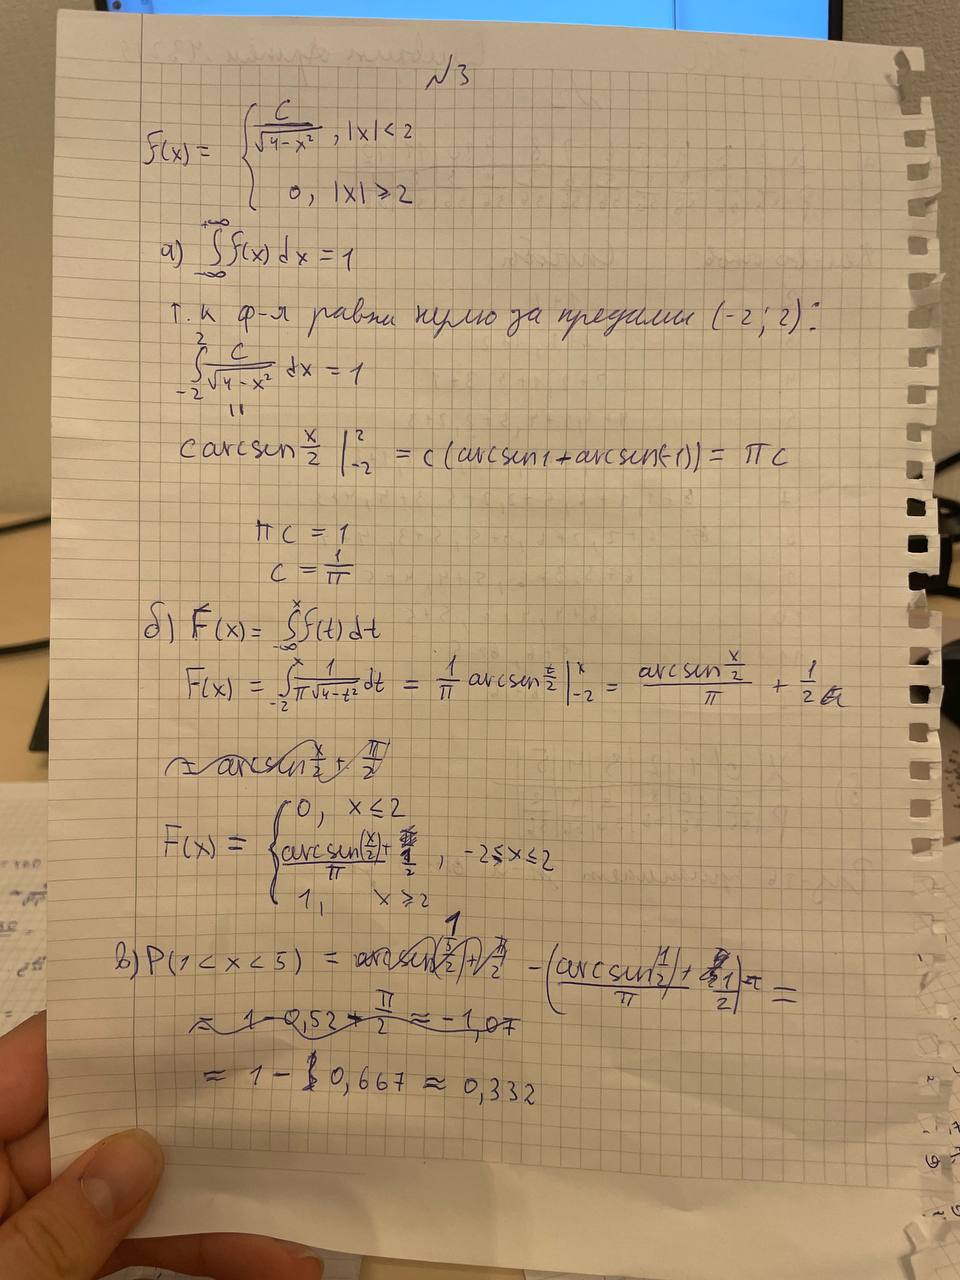 №3
f(x) = { C/√(4-x²), |x| < 2
0, |x| ≥ 2
а) ∫_{-∞}^{+∞} f(x) dx = 1
т.к ф-я равна нулю за предами (-2; 2):
∫_{-2}^{2} C/√(4-x²) dx = 1
||
c arcsen x/2 |_{-2}^{2} = c (arcsen1 + arcsen(-1)) = πc
πc = 1
c = 1/π
б) F(x) = ∫_{-∞}^{x} f(t) dt
F(x) = ∫_{-2}^{x} 1/(π√(4-t²)) dt = 1/π arcsen t/2 |_{-2}^{x} = (arcsen x/2)/π + 1/2
= arcsen x/2 + π/2
F(x) = { 0, x ≤ 2
arcsen(x/2)/π + 1/2, -2 ≤ x ≤ 2
1, x ≥ 2
1
в) P(1 < x < 5) = arcsen(5/2) + π/2 - (arcsen(1/2)/π + 1/2) =
= 1 - 0,52 + π/2 ≈ -1,07
≈ 1 - 0,667 ≈ 0,332